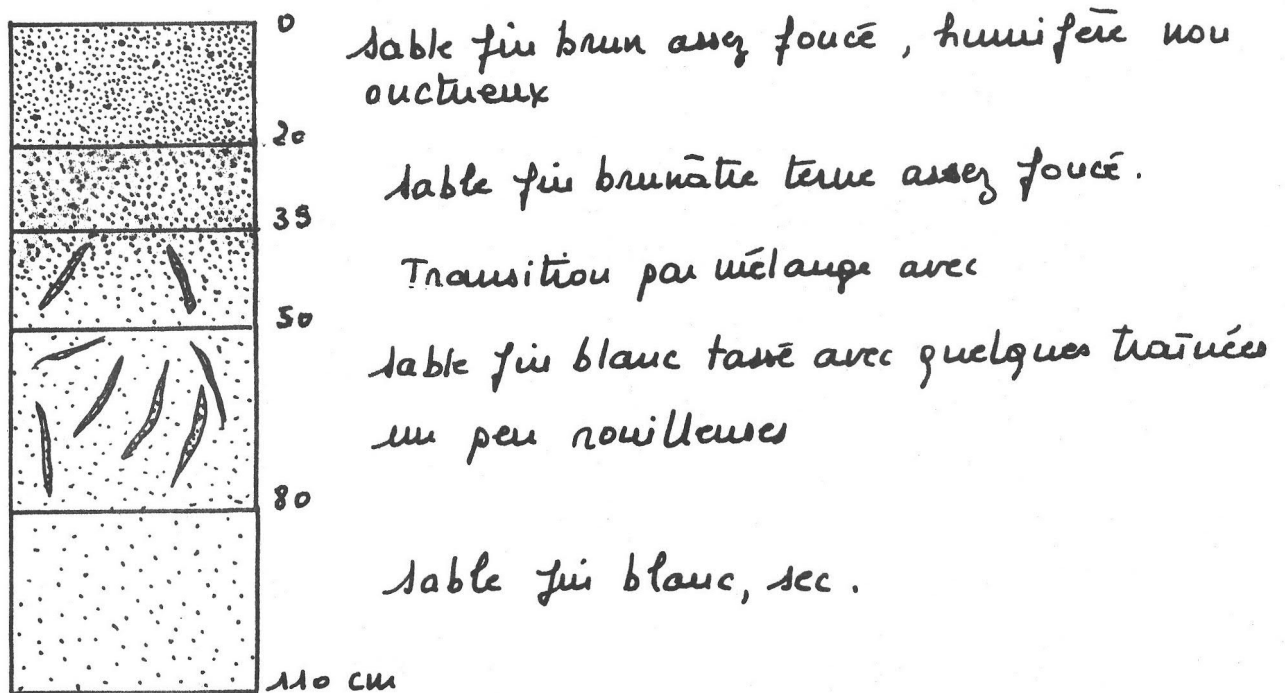 0
sable fin brun assez foncé, humifère non
onctueux
20
sable fin brunâtre terne assez foncé.
35
Transition par mélange avec
50
sable fin blanc tassé avec quelques traînées
un peu rouilleuses
80
sable fin blanc, sec.
110 cm